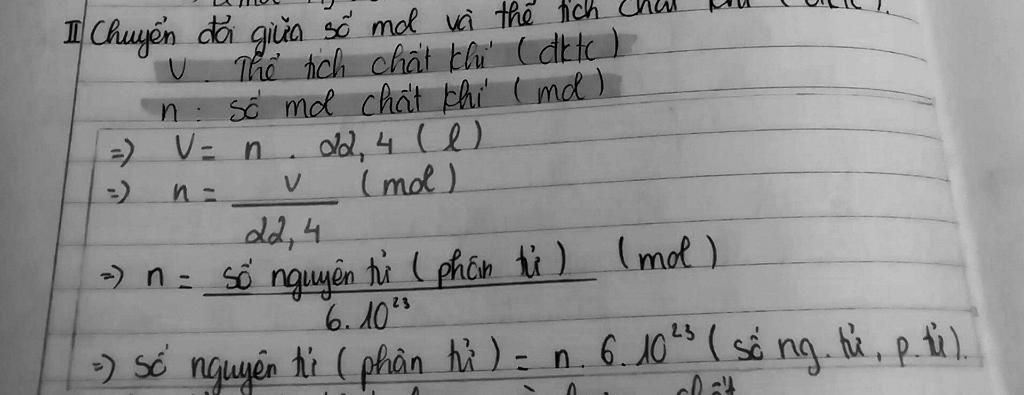 II Chuyển đổi giữa số mol và thể tích chất khí (đktc).
V. Thể tích chất khí (đktc)
n: số mol chất khí (mol)
=) V = n . 22,4 (l)
=) n = V / 22,4 (mol)
=) n = số nguyên tử (phân tử) / 6.10²³ (mol)
=) số nguyên tử (phân tử) = n. 6.10²³ (số ng. tử, p. tử).